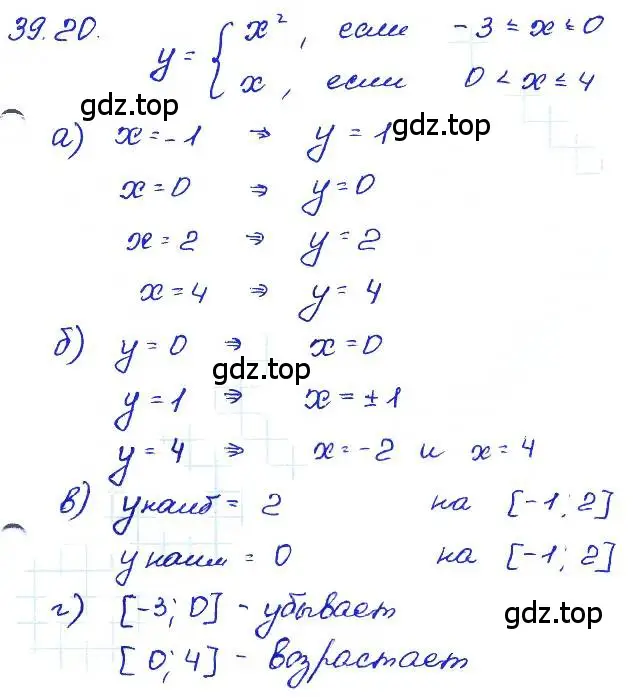 39.20.
y = { x², если -3 ≤ x ≤ 0
x, если 0 < x ≤ 4
gdz.top
а) x = -1 ⇒ y = 1 gdz.top
x = 0 ⇒ y = 0
x = 2 ⇒ y = 2
x = 4 ⇒ y = 4
б) y = 0 ⇒ x = 0
gdz.top
y = 1 ⇒ x = ±1
y = 4 ⇒ x = -2 и x = 4
в) y наиб = 2 на [-1; 2]
y наим = 0 на [-1; 2]
г) [-3; 0] - убывает gdz.top
[0; 4] - возрастает